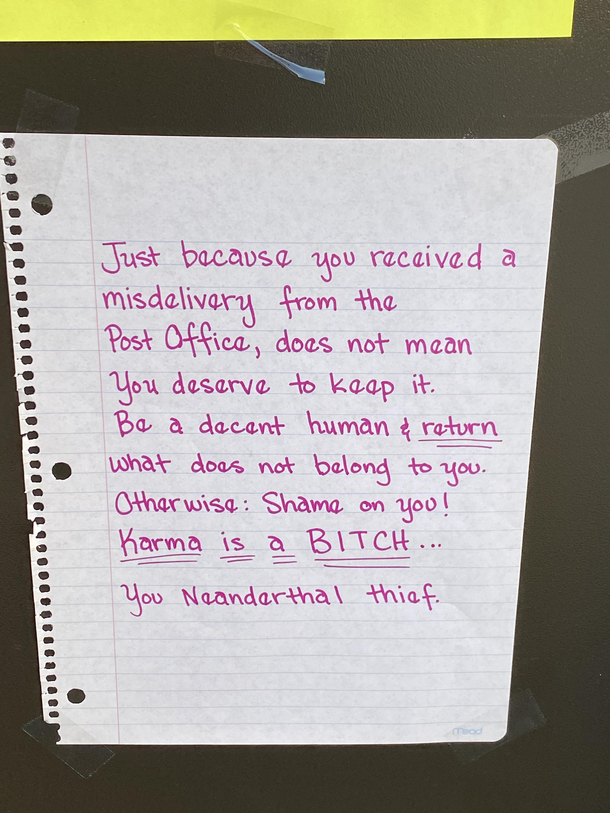 Just because you received a
misdelivery from the
Post Office, does not mean
you deserve to keep it.
Be a decent human & return
what does not belong to you.
Otherwise: Shame on you!
Karma is a BITCH...
You Neanderthal thief.
Mead